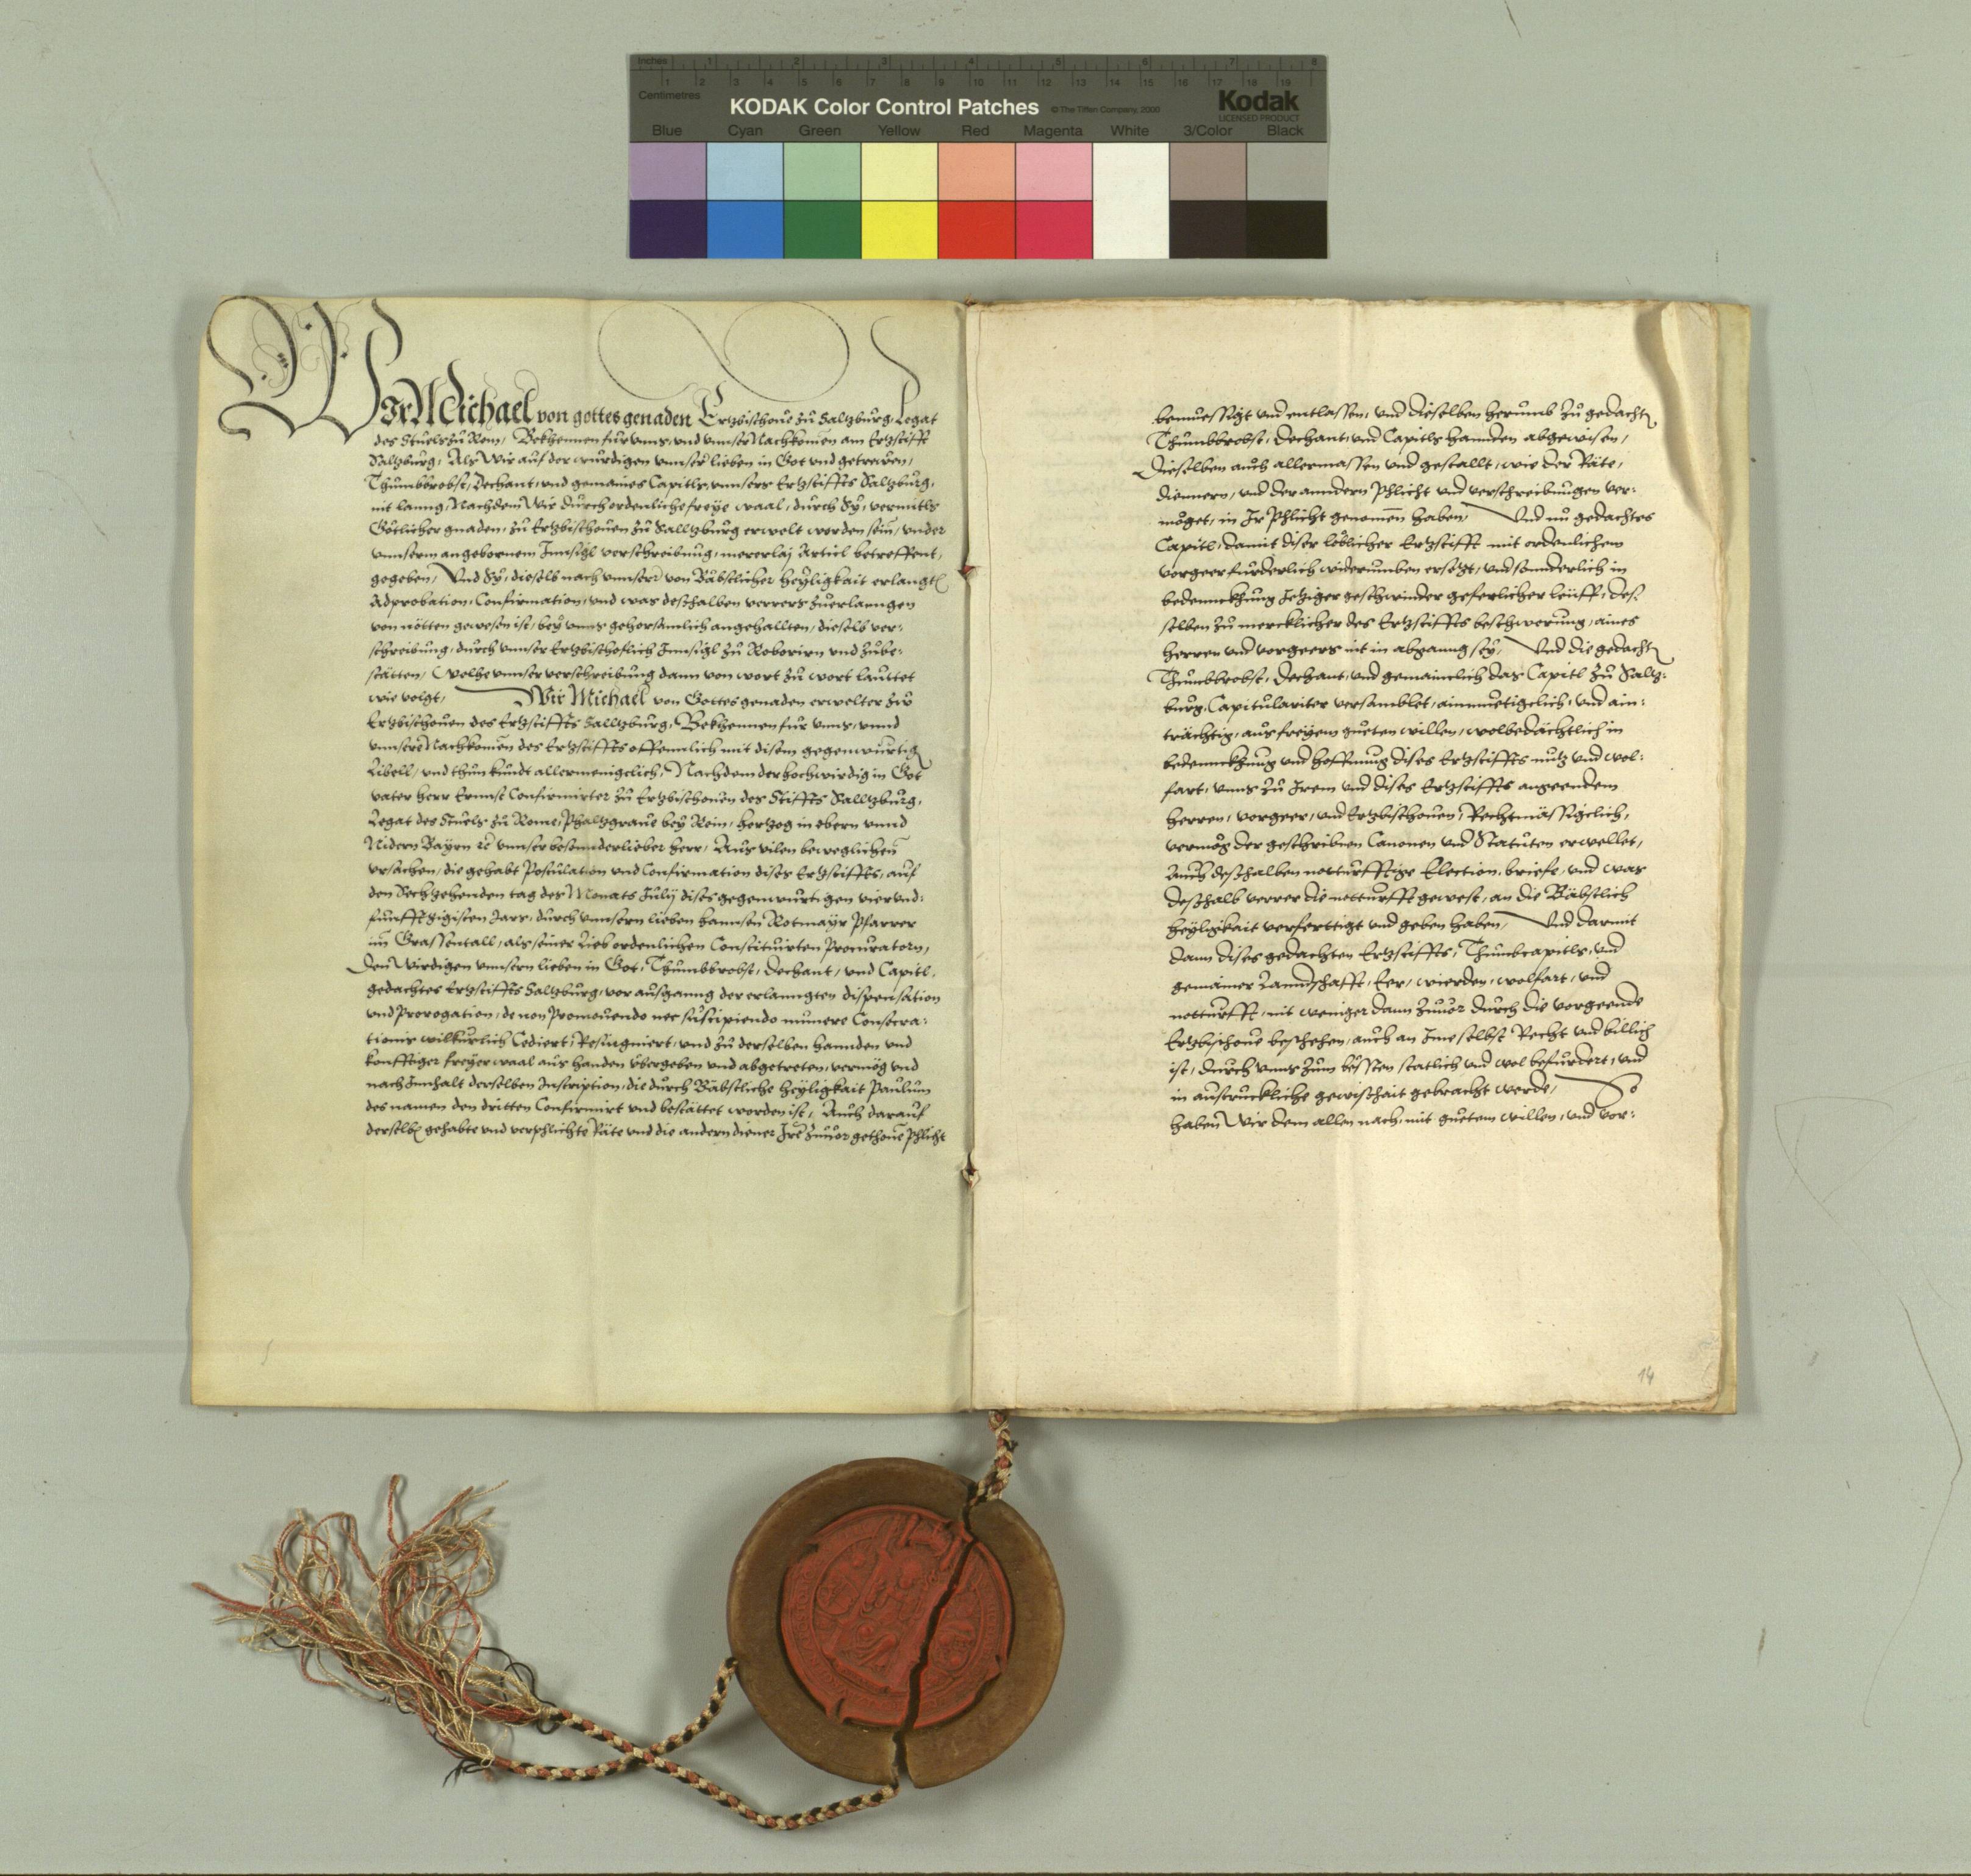 Inches 1 2 3 4 5 6 7 8
Centimetres 1 2 3 4 5 6 7 8 9 10 11 12 13 14 15 16 17 18 19
KODAK Color Control Patches © The Tiffen Company, 2000 Kodak
LICENSED PRODUCT
Blue Cyan Green Yellow Red Magenta White 3/Color Black
Wir Michael von gottes genaden Ertzbischove zů Saltzbůrg, Legat
des Stuels zů Rom, Bekhennen für unns, und unnser Nachkomen am Ertzstifft
Saltzbůrg, Als Wir auf der wůrdigen unnser lieben in Got und getrewen,
Thůmbbrobst, Dechant, und gemaines Capitls, unnsers Ertzstiffts Saltzbůrg,
nit lanng, Nachdem Wir důrch ordenliche freye waal, důrch Sy, vermitls
Götlicher gnaden, zů Ertzbischoven zů Salltzbůrg erwelt worden sein, under
unnserm angebornem Innsigl verschreibung, mererlaj Articl betreffent,
gegeben, Und Sy, dieselb nach unnserr von Bäbstlicher heyligkait erlangt
Adprobation, Confirmation, und was deßhalben verrers zůerlanngen
von nötten gewesen ist, bey unns gehorsamlich angehallten, dieselb ver-
schreibung, důrch unnser Ertzbischoflich Innsigl zů Roborirn und zůbe-
stätten, Wolhe unnser verschreibung dann von wort zů wort lauttet
wie volgt, Wir Michael von Gottes genaden erwelter zů
Ertzbischoven des Ertzstiffts Salltzbůrg, Bekhennen für unns, unnd
unnsere Nachkomen des Ertzstiffts offennlich mit disem gegenwürtig
Libell, und thůn kůndt allermenigclich, Nachdem der hochwirdig in Got
vater herr Ernnst Confirmirter zů Ertzbischoven des Stiffts Salltzbůrg,
Legat des Stuels zů Rome, Phaltzgrave bey Rein, hertzog in obern unnd
Nidern Bayrn rc unnser besonnderlieber herr, Aus vilen beweglichen
ursachen, die gehabt Postulation und Confirmation dises Ertzstiffts, auf
den Sechzehenden tag des Monats Julij dises gegenwurtigen vierund-
fünfftzigisten Jars, durch unnsern lieben hannsen Rotmayr Pfarrer
im Grassentall, als seiner Lieb ordenlichen Constituirten Procuratorn,
Den Wirdigen unnsern lieben in Got, Thůmbbrobst, Dechant, und Capitl,
gedachtes Ertzstiffts Saltzbůrg, vor ausganng der erlanngten dispensation
und Prorogation, de non Promovendo nec suscipiendo munere Consecra-
tionis wilkürlich Cediert, Resingniert, und zů derselben hannden und
konfftiger freyer waal aus handen übergeben und abgetreten, vermög und
nach Innhalt derselben Inscription, die durch Bäbstliche heyligkait Paulum
des namen den dritten Confirmirt und bestättet worden ist, Auch darauf
derselb gehabte und verphlichte Räte und die andern diener Jre zuvor gethone phlicht
bemuessigt und entlassen, und dieselben herumb zů gedacht
Thůmbbrobst, Dechant, und Capitls hannden abgewisen,
Dieselben auch allermassen und gestallt, wie der Räte,
diennern, und der anndern Phlicht und verschreibungen ver-
möget, in Jr Phlicht genomen haben, Und nů gedachtes
Capitl, damit diser löblicher Ertzstifft mit ordenlichem
vorgeer fürderlich widerumben ersetzt, und sonnderlich in
bedennckhung Jetziger geschwinder geferlicher leuff, des-
selben zů mercklicher des Ertzstiffts beschwerung, aines
herren und vorgeers nit in abganng sey, Und die gedacht
Thůmbbrobst, Dechant, und gemainclich das Capitl zů Saltz-
bůrg, Capitulariter versamblet, ainmuetigclich, und ain-
trächtig, aus freyem guetem willen, wolbedächtlich in
bedennckhung und hoffnung dises Ertzstiffts nutz und wol-
fart, unns zů Jrem und dises Ertzstiffts angeendem
herren, vorgeer, und Ertzbischoven, Rechtmässigclich,
vermög der geschribnen Canonen und Statuten erwellet,
Auch deßhalben notturfftige Election, briefe, und was
deßhalb verrer die notturfft gewest, an die Bäbstlich
heyligkait verferttigt und geben haben, Und darmit
dann dises gedachten Ertzstiffts, Thůmbcapitls, und
gemainer Lanndschafft, Eer, wierden, wolfart, und
notturfft, nit weniger dann zuvor durch die vorgeende
Ertzbischove beschehen, auch an Jme selbst Recht und billich
ist, durch unns zum bessten statlich und wol befürdert, und
in austruckhliche gewißhait gebracht werde, So
haben Wir dem allen nach, mit guetem willen, und vor-
14